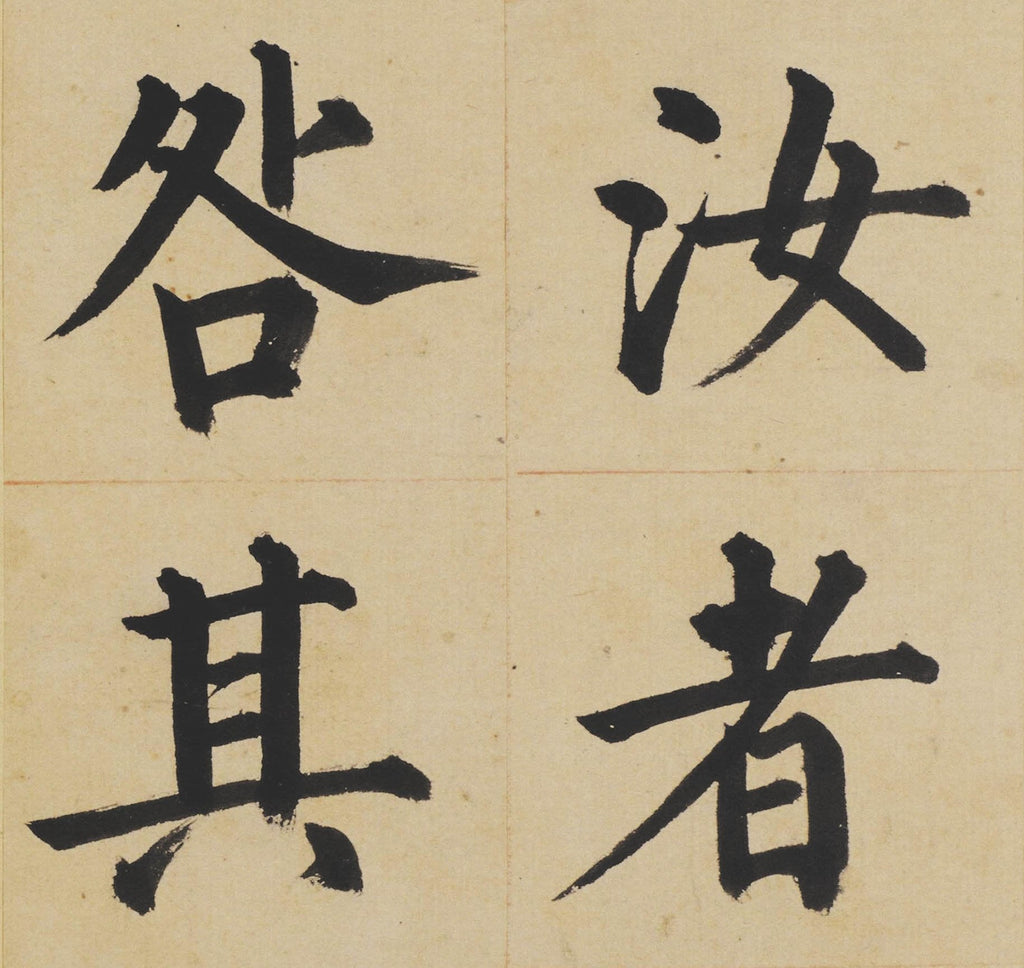 汝者
咎其